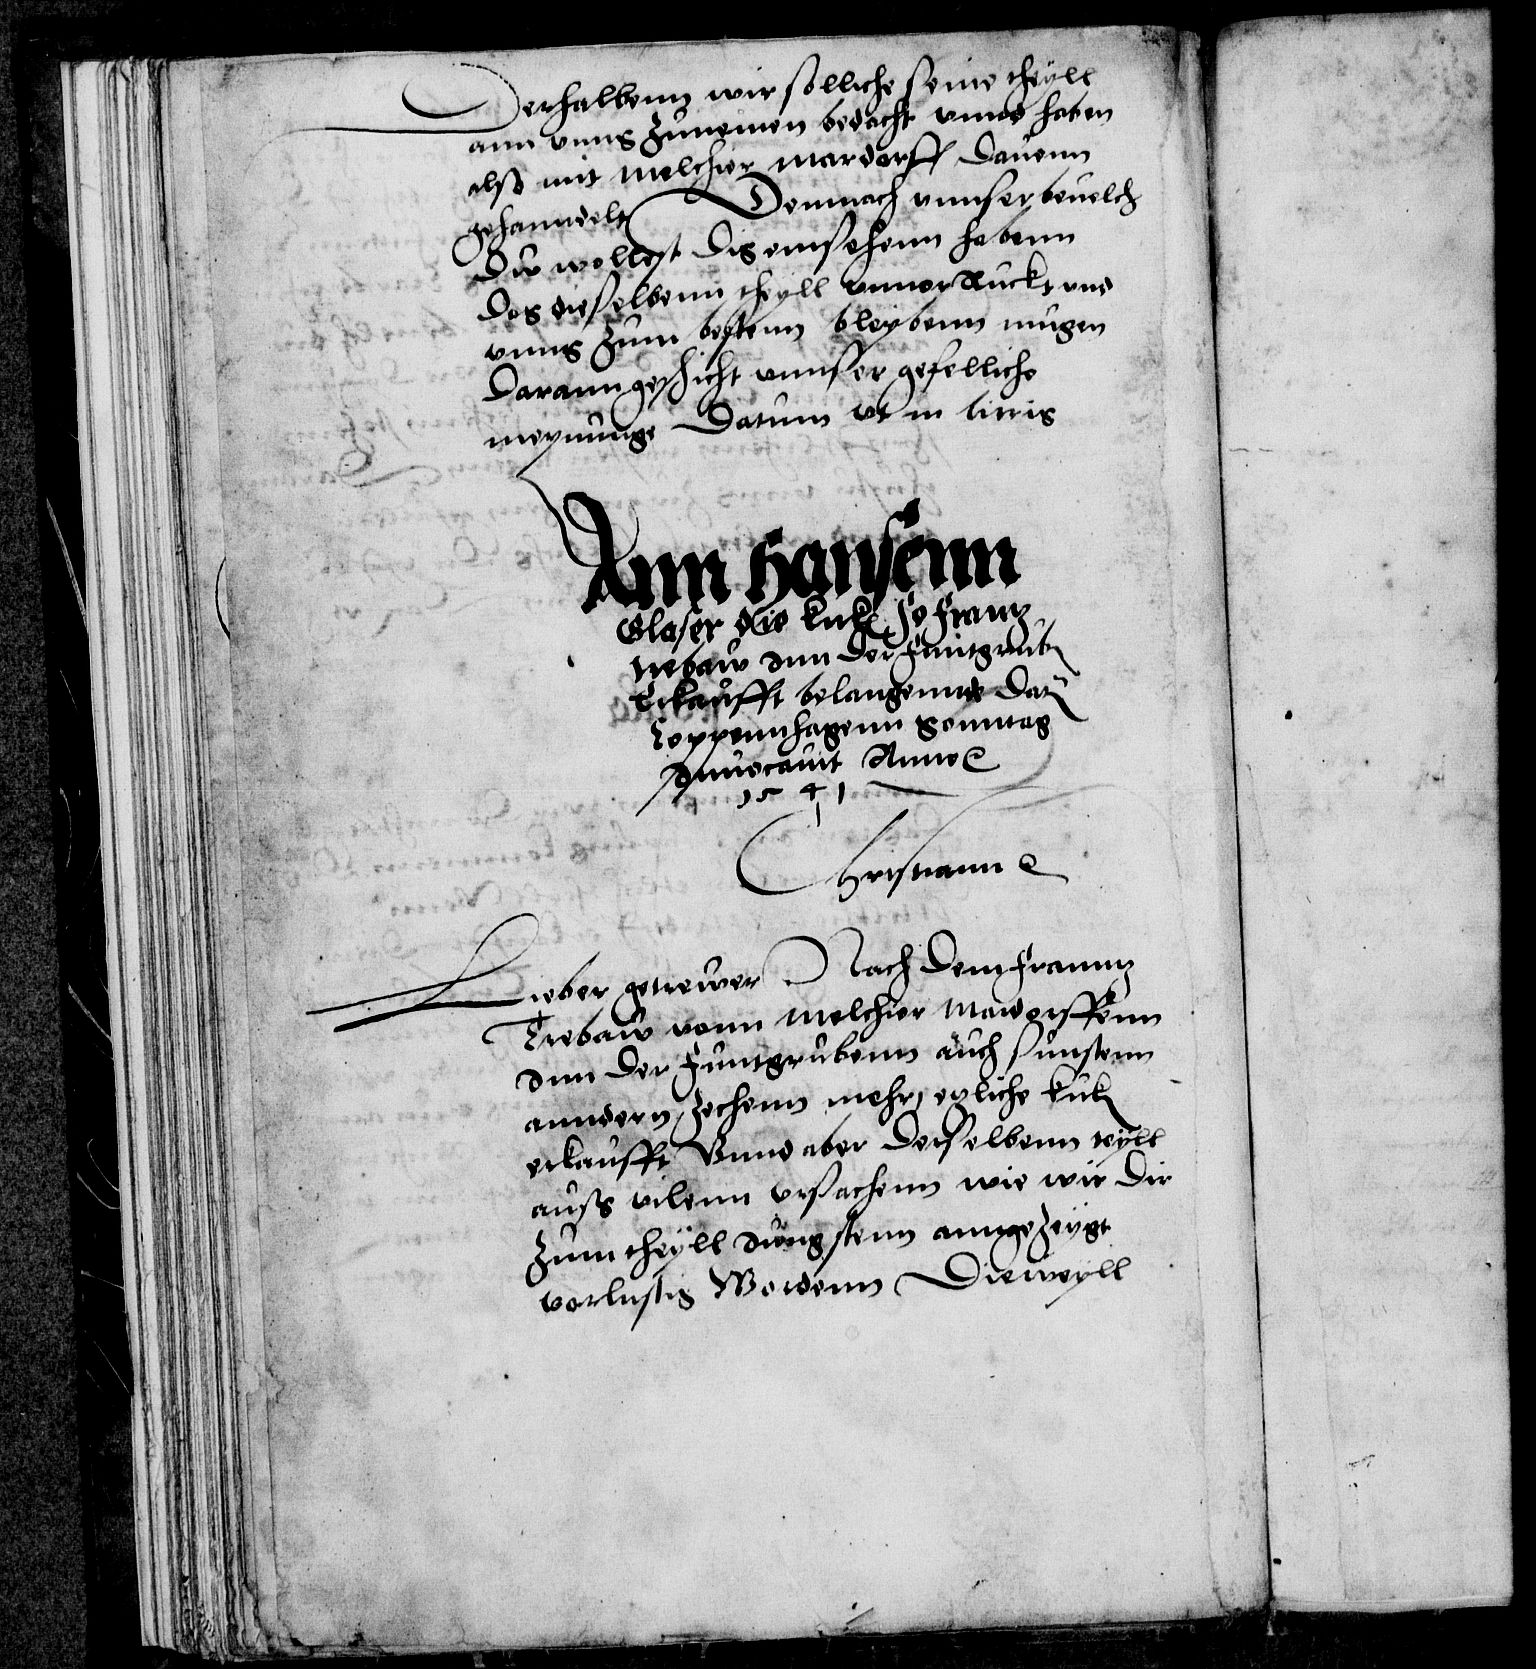 Derhalbenn wir solliche seine theyll
ann vnns Zunemen bedacht vnnd haben
also mit Melchior Mardorff dauonn
gehanndelt Demnach vnnser beuelch
Du wollest das einsehenn habenn
das dieselbenn theyll vnuorruckt vnd
vnns Zum bestenn bleybenn mugen
darann geschicht vnnser gefelliche
meynunge Datum vt in litris
Ann Hansenn
Glaser die kuk so Frantz
Trebaw Inn der Funtgrub
Erkaufft belangennde Dat
Coppennhagenn Sonntag
Inuocauit Anno
1541
Christiann
Lieber getrewer Nach dem Franntz
Trebaw vonn Melchior Mardorffenn
Inn der Funtgrubenn auch sunstenn
anndern Zechenn mehr etzliche kuk
erkaufft Vnnd aber derselbenn teyll
auss vilenn vrsachenn wie wir dir
Zum theyll Jungstenn anngeZeygt
vorlustig Wordenn Dieweyll